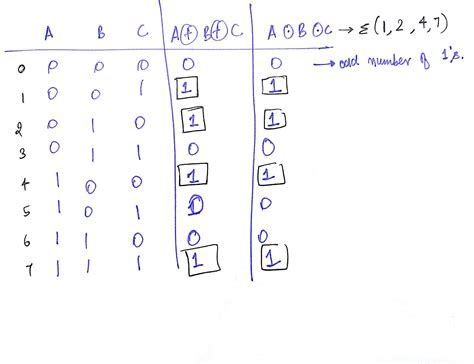 A B C A⊕B⊕C A⊙B⊙C → Σ(1,2,4,7)
0 0 0 0 0 0 → odd number of 1's.
1 0 0 1 1 1
2 0 1 0 1 1
3 0 1 1 0 0
4 1 0 0 1 1
5 1 0 1 0 0
6 1 1 0 0 0
7 1 1 1 1 1